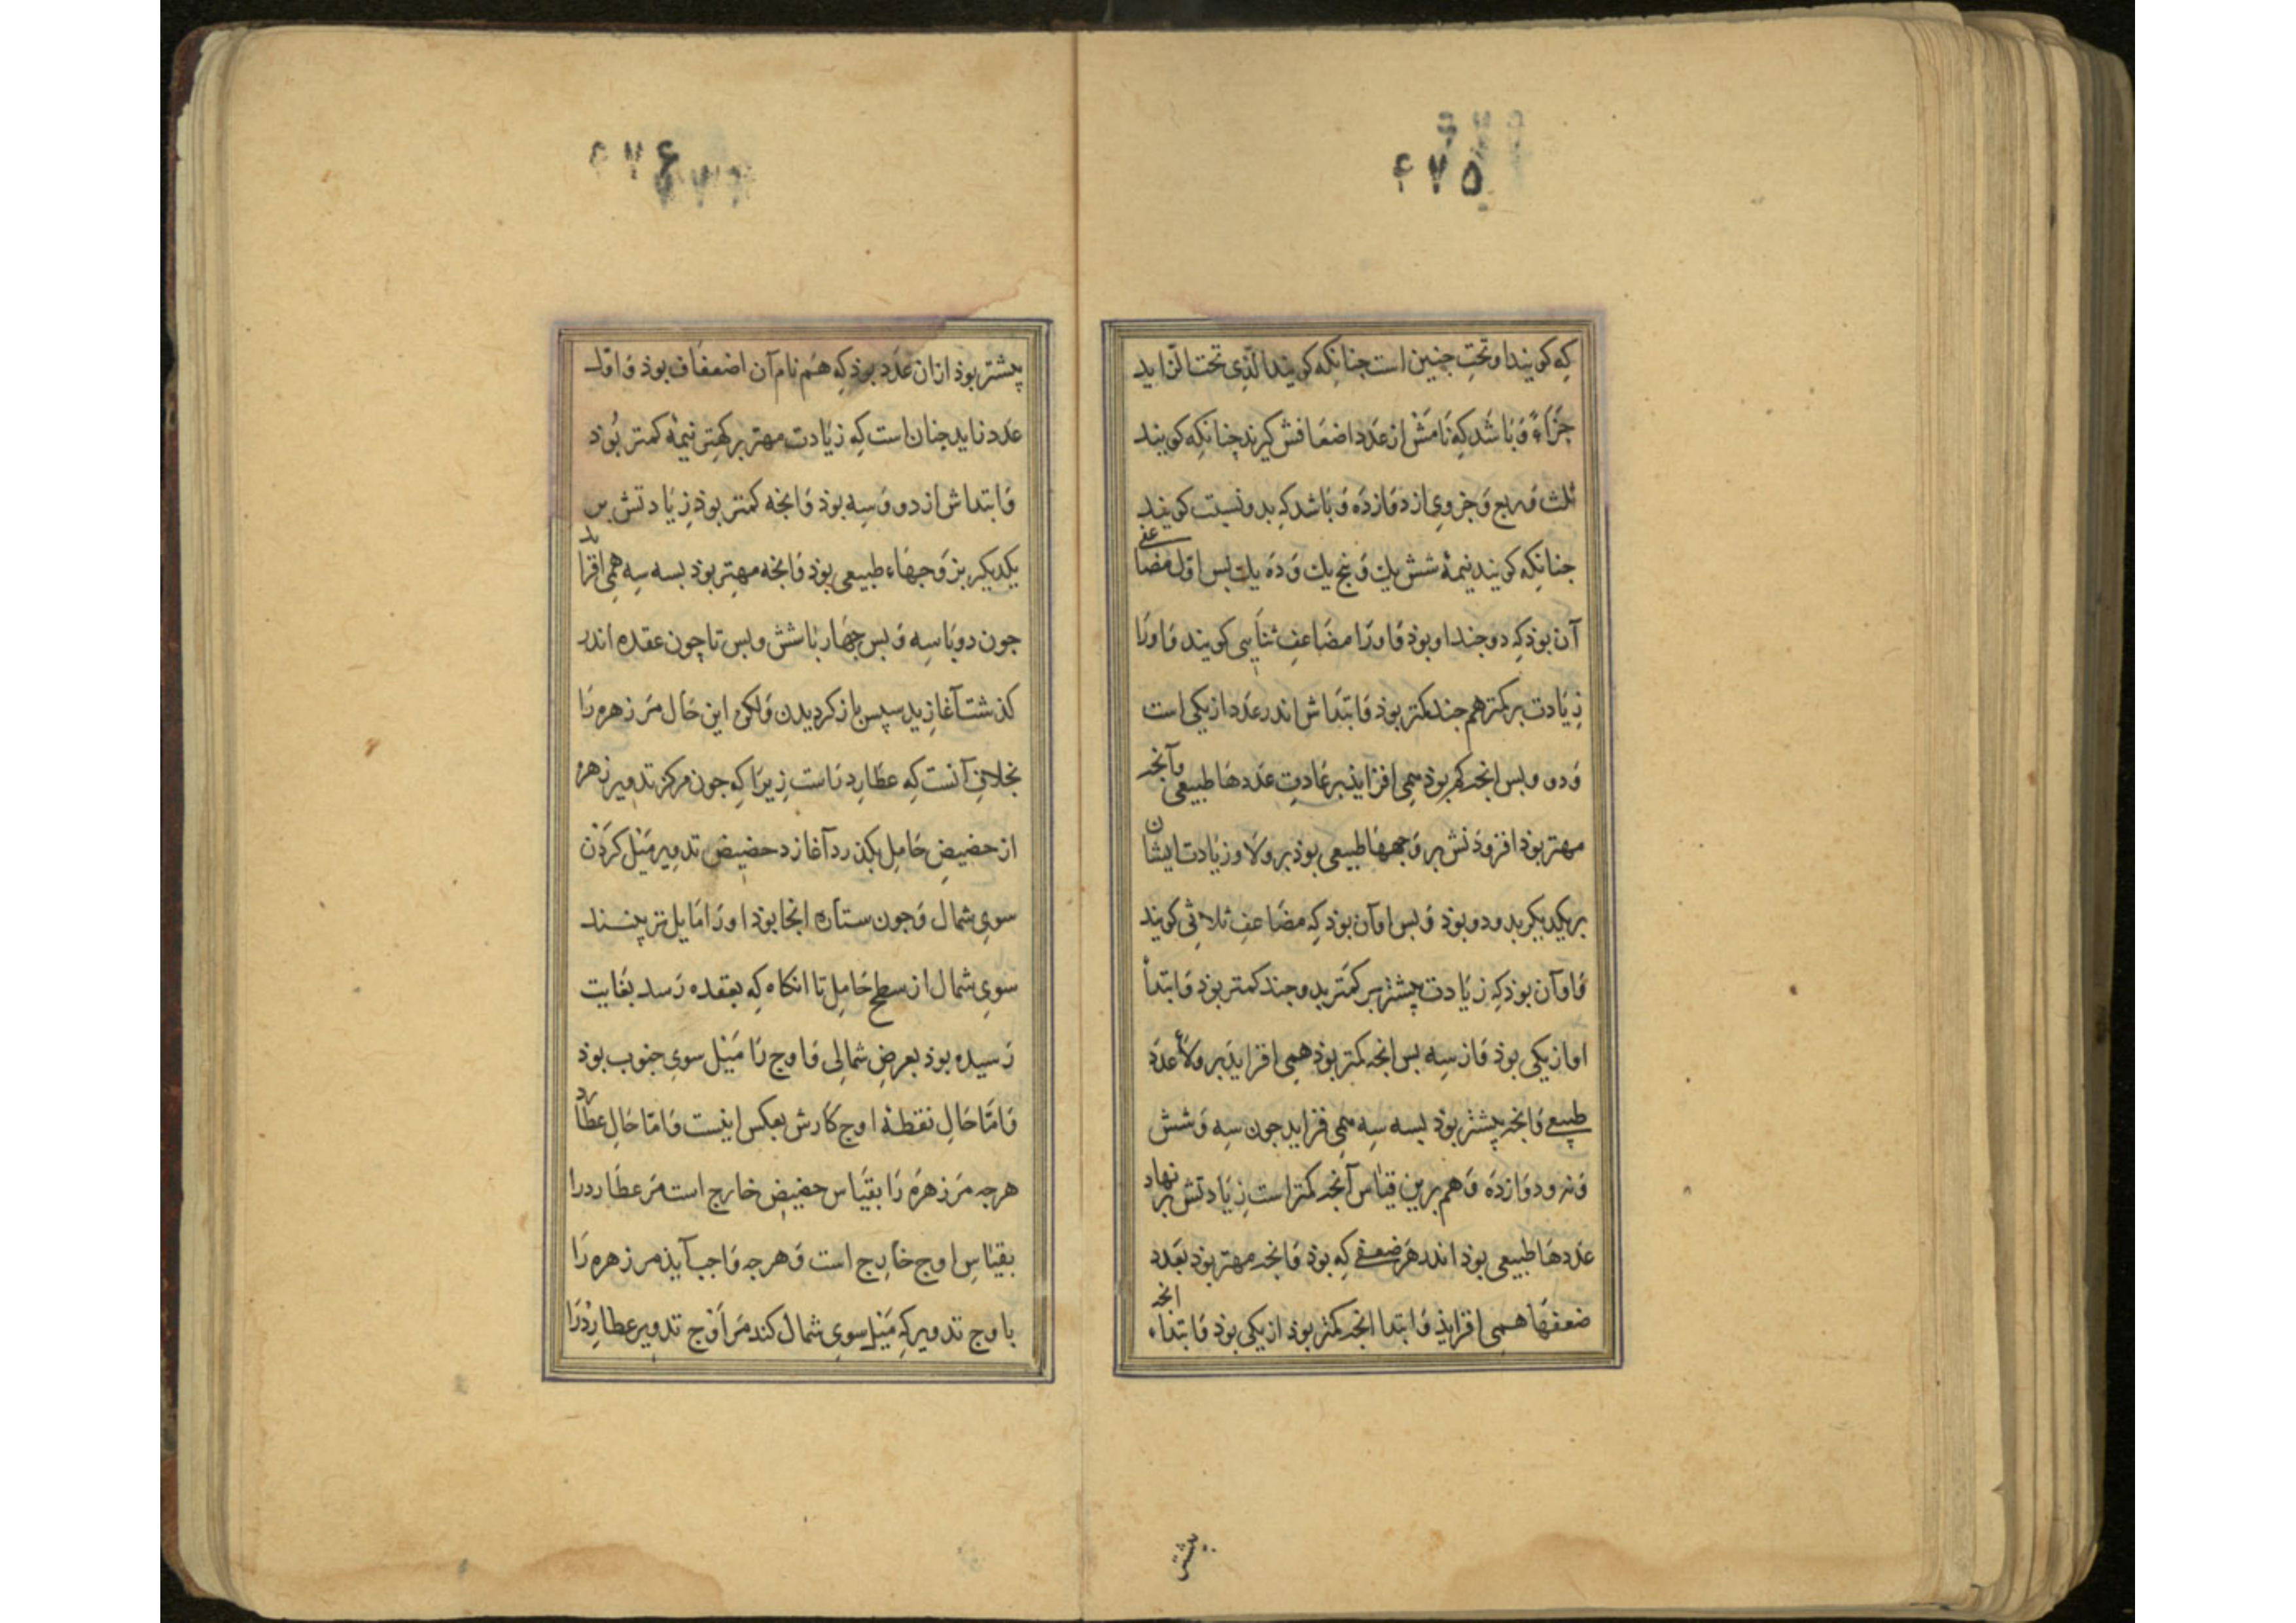 ۴۷۵
که کویند او تحت جنین است جنانکه کویند الّذی تحت الزّاید
جزاءً وَ باشد که نامش از عدد اضعافش کیرند چنانکه کویند
ثلث و ربع و جزوی از دوازده و باشد که بدو نسبت کویند
جنانکه کویند نیمهٔ شش یك و پنج یك و ده یك بس اوّل مضاعفی
آن بوذ که دو جند او بوذ و اورا مضاعفِ ثنایی کویند و اورا
زیادت بر کمتر هم جند کمتر بوذ و ابتداش اندر عدد از یکی است
و دو و بس انجه کم بوذ همی افزایذ بر عادتِ عددها طبیعی و آنجه
مهتر بوذ افزوذنش بر زوجها طبیعی بوذ بر ولا و زیادت ایشان
بر یکدیکر بدو دو بوذ و بس او آن بوذ که مضاعفِ ثلاثی کویند
و او آن بوذ که زیادت بیشتر بر کمتر بدو جند کمتر بوذ و ابتدأ
او از یکی بوذ و از سه بس انجه کمتر بوذ همی افزایذ بر ولاءِ عدد
طبیعی و انجه بیشتر بوذ بسه سه همی فزاید جون سه و شش
و نه و دوازده و هم برین قیاس آنجه کمتر است زیادتش بر نهاد
عددها طبیعی بوذ اندر هر ضعفی که بوذ و انجه مهتر بوذ بعدد
ضعفها همی افزایذ و ابتدا انجه کمتر بوذ از یکی بوذ و ابتداء انجه
بیشتر
۴۷۶
بیشتر بوذ ازان عدد بوذ که هم نام آن اضعاف بوذ و اوّل
عدد زاید جنان است که زیادت مهتر بر کهتر نیمهٔ کمتر بُوذ
و ابتداش از دو و سه بوذ و انجه کمتر بوذ زیادتش بر
یکدیکر بزوجهاء طبیعی بوذ و انجه مهتر بوذ بسه سه همی افزاید
جون دو با سه و بس جهار با شش و بس تا چون عقده اندر
کذشت آغازید سپس باز کردیدن و لکن این حال مر زهره را
بخلاف آنست که عطارد راست زیرا که جون مرکز تدویر زهره
از حضیضِ حامل بکذرد آغازد حضیض تدویر مَیل کردن
سوی شمال و جون ستاره انجا بوذ اورا مایل تر بینند
سوی شمال از سطح حامل تا انکاه که بعقده رسد بغایت
رسیده بوذ بعرضِ شمالی و اوج را مَیل سوی جنوب بوذ
و امّا حالِ نقطهٔ اوج کارش بعکس اینست و امّا حالِ عطارد
هرجه مر زهره را بقیاس حضیض خارج است مر عطارد را
بقیاسِ اوج خارج است و هرجه واجب آیذ مر زهره را
باوج تدویر که مَیل سوی شمال کند مر اَوج تدویر عطارد را